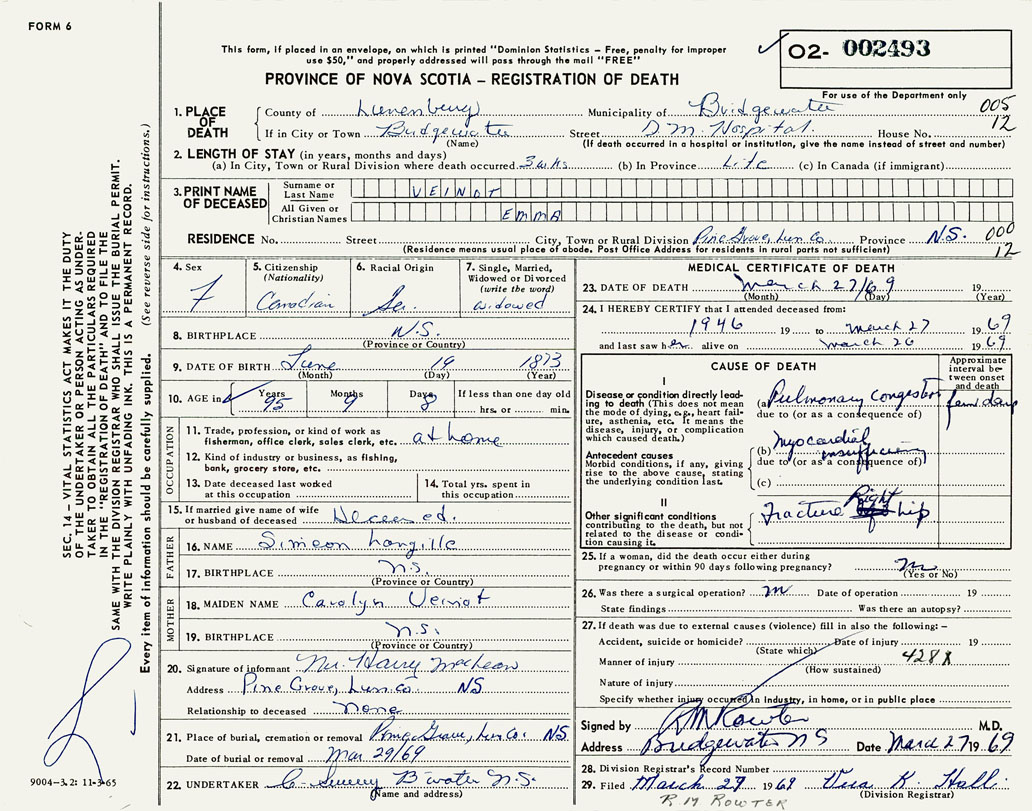 FORM 6
This form, if placed in an envelope, on which is printed "Dominion Statistics – Free, penalty for improper
use $50," and properly addressed will pass through the mail "FREE"
O2- 002493
For use of the Department only
PROVINCE OF NOVA SCOTIA – REGISTRATION OF DEATH
1. PLACE OF DEATH County of Lunenburg Municipality of Bridgewater 005
If in City or Town Bridgewater Street D.M. Hospital. House No. 12
(Name) (If death occurred in a hospital or institution, give the name instead of street and number)
2. LENGTH OF STAY (in years, months and days)
(a) In City, Town or Rural Division where death occurred 3 wks (b) In Province Life (c) In Canada (if immigrant)
3. PRINT NAME OF DECEASED Surname or Last Name VEINOT
All Given or Christian Names EMMA
RESIDENCE No. Street City, Town or Rural Division Pine Grove, Lun Co. Province N.S. 000
(Residence means usual place of abode. Post Office Address for residents in rural parts not sufficient) 12
4. Sex F
5. Citizenship (Nationality) Canadian
6. Racial Origin
7. Single, Married, Widowed or Divorced (write the word) widowed
8. BIRTHPLACE N.S.
(Province or Country)
9. DATE OF BIRTH June 19 1873
(Month) (Day) (Year)
10. AGE in Years 95 Months 9 Days 8 If less than one day old hrs. or min.
OCCUPATION
11. Trade, profession, or kind of work as
fisherman, office clerk, sales clerk, etc. at home
12. Kind of industry or business, as fishing,
bank, grocery store, etc.
13. Date deceased last worked at this occupation
14. Total yrs. spent in this occupation
15. If married give name of wife
or husband of deceased Deceased.
FATHER
16. NAME Simeon Langille
17. BIRTHPLACE N.S.
(Province or Country)
MOTHER
18. MAIDEN NAME Carolyn Veinot
19. BIRTHPLACE N.S.
(Province or Country)
20. Signature of informant Mr. Harry
Address Pine Grove, Lun Co. NS
Relationship to deceased none
21. Place of burial, cremation or removal Pine Grove, Lun Co. NS
Date of burial or removal Mar 29/69
22. UNDERTAKER C. B'water N.S.
(Name and address)
MEDICAL CERTIFICATE OF DEATH
23. DATE OF DEATH March 27/69 19
(Month) (Day) (Year)
24. I HEREBY CERTIFY that I attended deceased from:
1946 19 to March 27 1969
and last saw her alive on March 26 1969
CAUSE OF DEATH
Approximate interval between onset and death
I
Disease or condition directly leading to death (This does not mean
the mode of dying, e.g., heart failure, asthenia, etc. It means the
disease, injury, or complication
which caused death.)
(a) Pulmonary congestion few days
due to (or as a consequence of)
Antecedent causes
Morbid conditions, if any, giving
rise to the above cause, stating
the underlying condition last.
(b) Myocardial insufficiency
due to (or as a consequence of)
(c)
II
Other significant conditions
contributing to the death, but not
related to the disease or condition causing it.
Fracture Right hip
25. If a woman, did the death occur either during
pregnancy or within 90 days following pregnancy?
(Yes or No)
26. Was there a surgical operation? Date of operation 19
State findings Was there an autopsy?
27. If death was due to external causes (violence) fill in also the following: –
Accident, suicide or homicide? Date of injury 19
(State which)
Manner of injury 428X
(How sustained)
Nature of injury
Specify whether injury occurred in industry, in home, or in public place
Signed by R M Rowter M.D.
Address Bridgewater NS Date March 27 1969
28. Division Registrar's Record Number
29. Filed March 27 1969 Vera K. Hall
(Division Registrar)
R M ROWTER
SEC. 14 – VITAL STATISTICS ACT MAKES IT THE DUTY
OF THE UNDERTAKER OR PERSON ACTING AS UNDER-
TAKER TO OBTAIN ALL THE PARTICULARS REQUIRED
IN THE "REGISTRATION OF DEATH" AND TO FILE THE
SAME WITH THE DIVISION REGISTRAR WHO SHALL ISSUE THE BURIAL PERMIT.
WRITE PLAINLY WITH UNFADING INK. THIS IS A PERMANENT RECORD.
Every item of information should be carefully supplied. (See reverse side for instructions.)
9004-3.2: 11-3-65